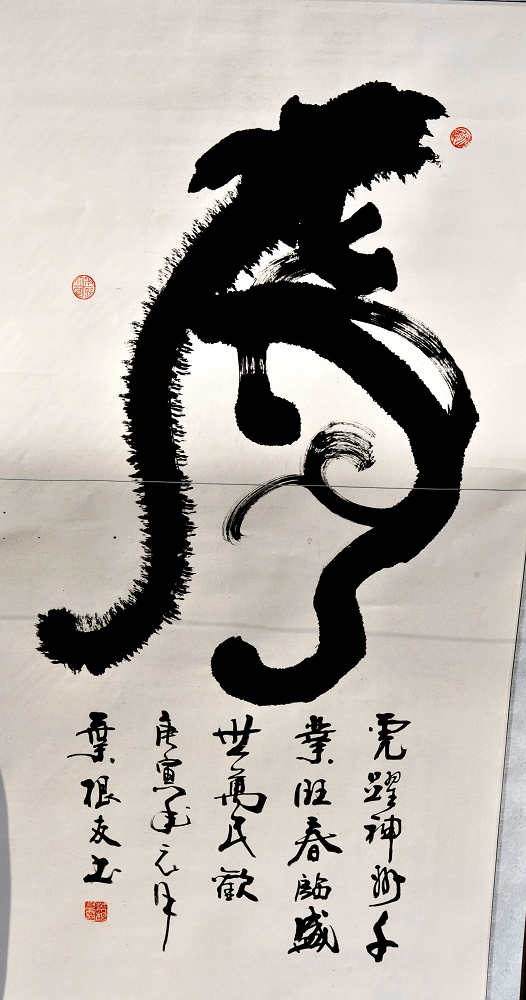 虎
虎躍神州千
業旺春臨盛
世萬民歡
庚寅年元月
葉根友书